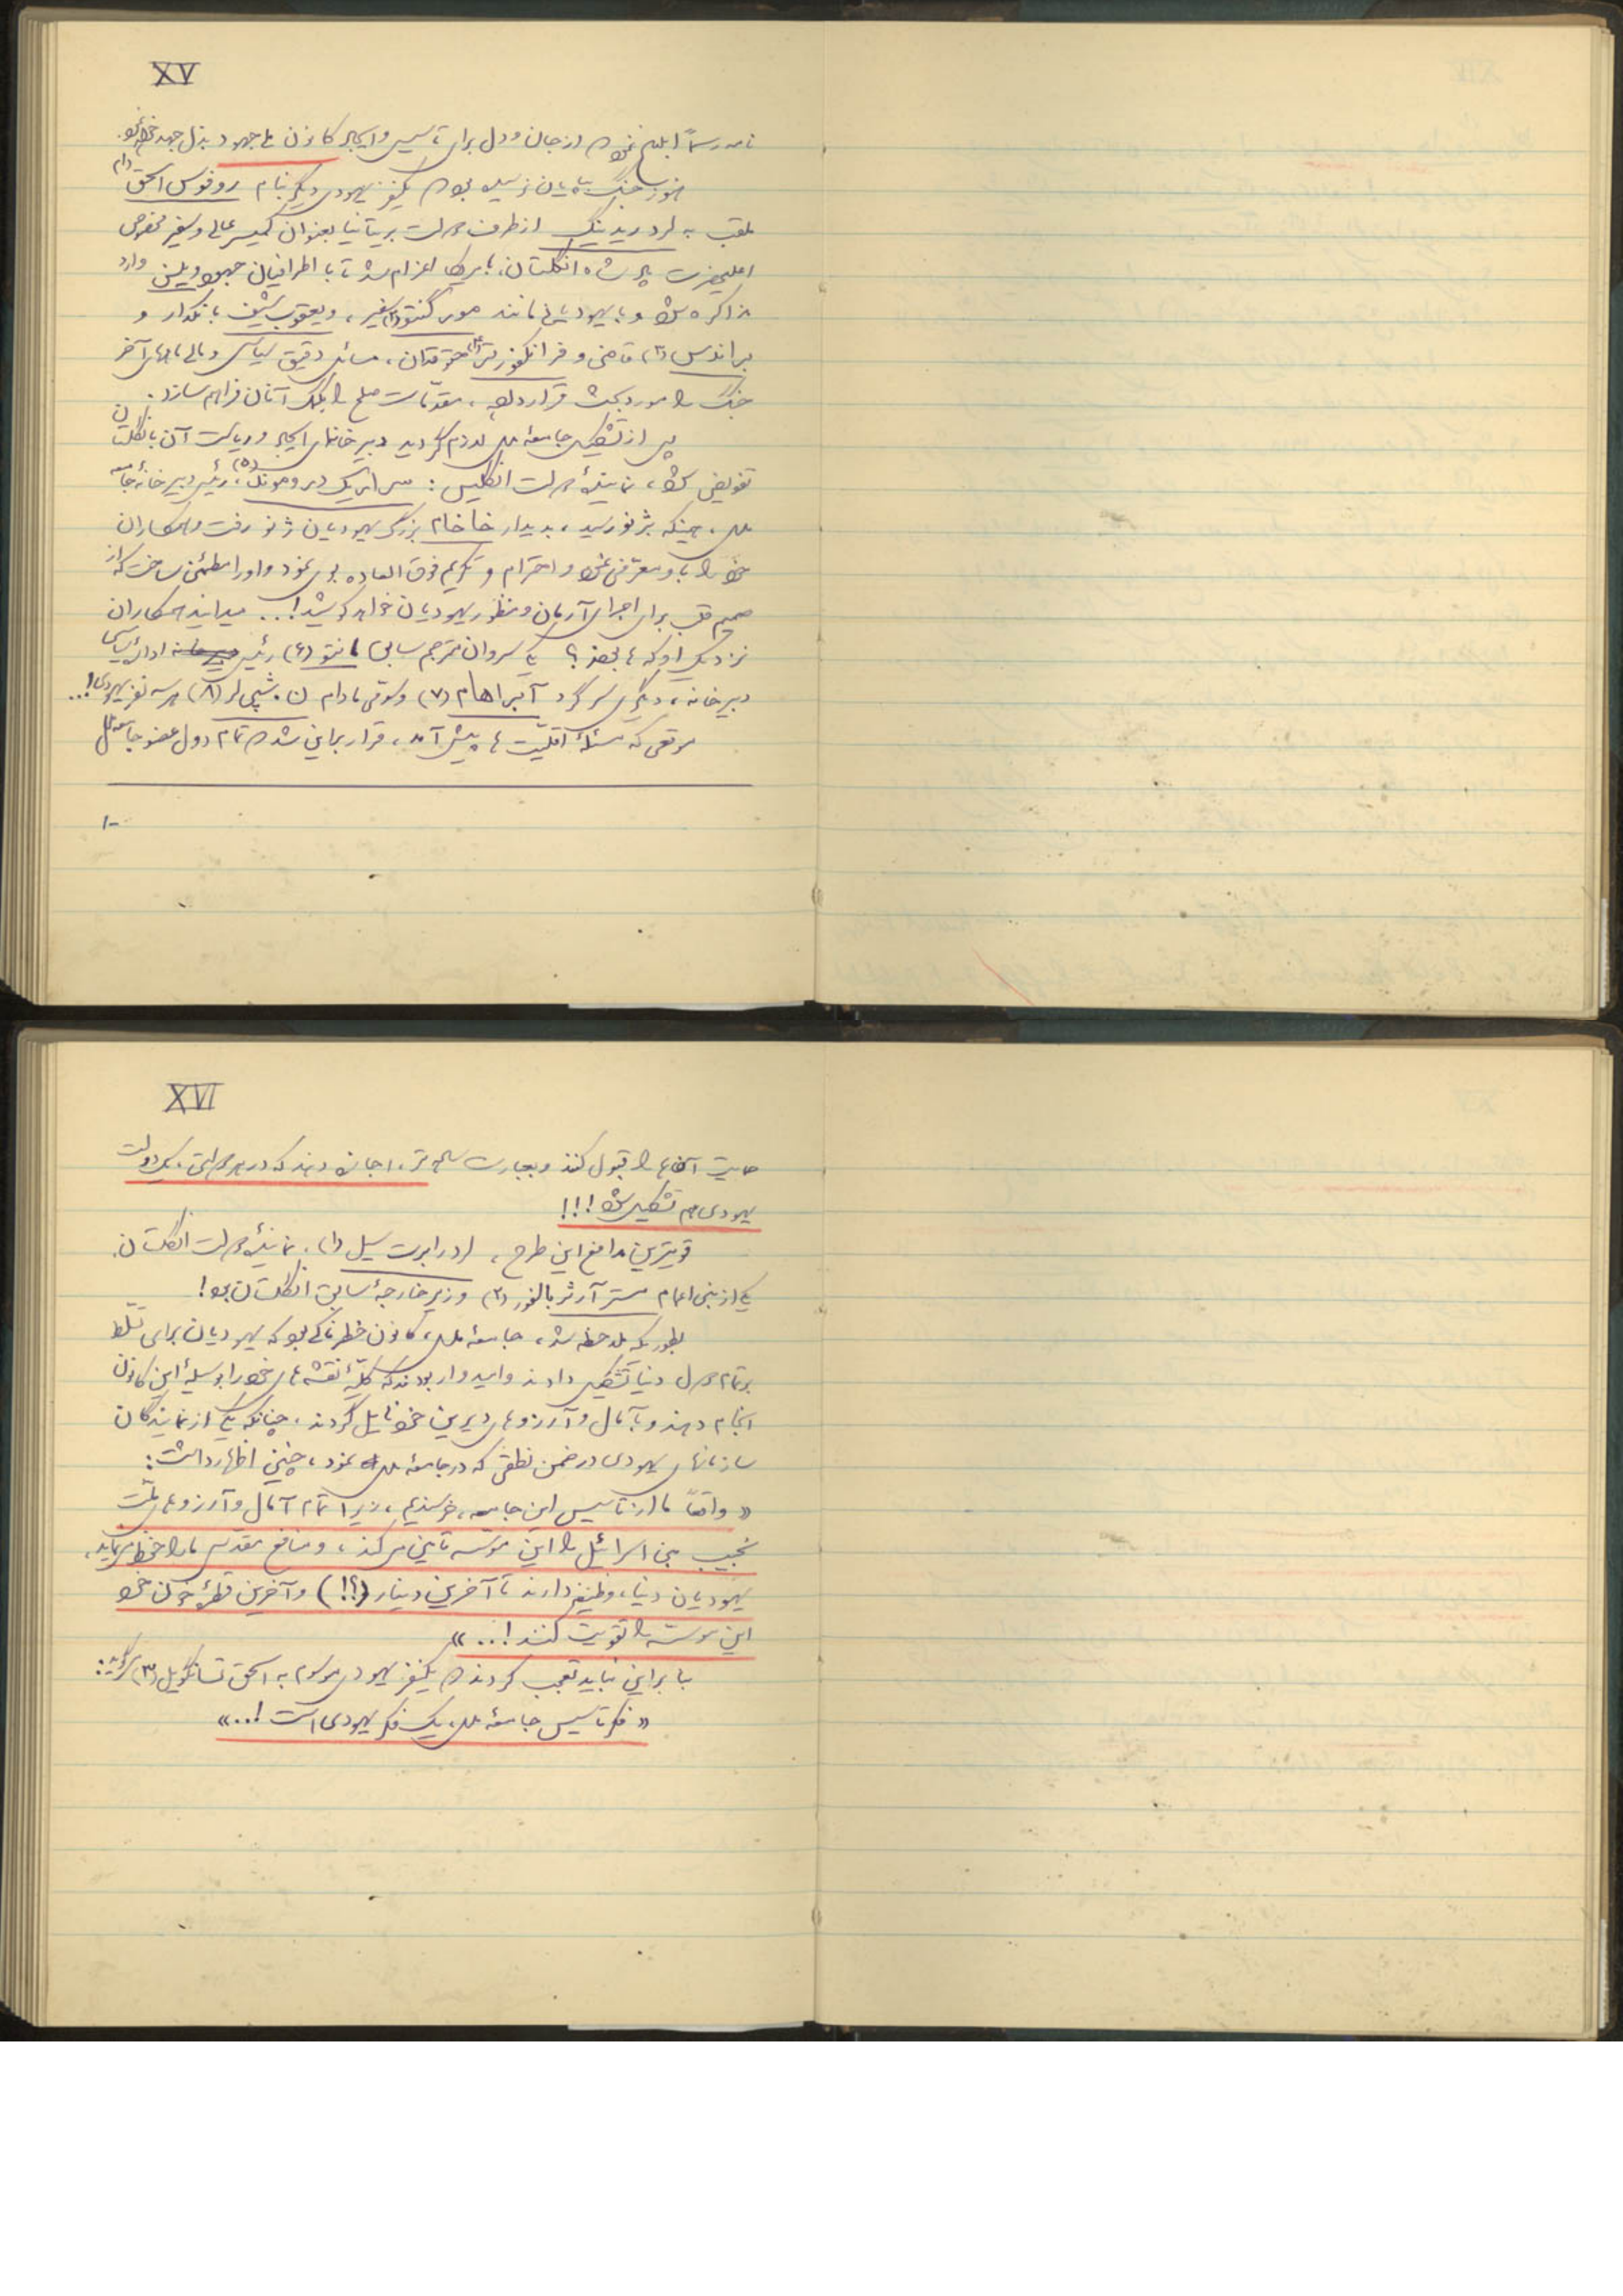 XV
نامه رسماً ابلاغ نمود که از جان و دل برای تأسیس و ایجاد کانون ملی جهود بذل جهد خواهد نمود.
هنوز جنگ بپایان نرسیده بود که یکنفر یهودی دیگر بنام روفوس اسحق (۱)
ملقب به لرد ریدینگ از طرف دولت بریتانیا بعنوان کمیسر عالی و سفیر مخصوص
اعلیحضرت پادشاه انگلستان، بامریکا اعزام شد تا با اطرافیان جمهور ویلسن وارد
مذاکره شود و با یهودیانی مانند مورگنتو (۲) سفیر، و یعقوب شیف بانکدار و
براندس (۳) قاضی و فرانکفورتر (۴) حقوقدان، مسائل دقیق سیاسی و مالی ماههای آخر
جنگ را مورد بحث قرار داده، مقدمات صلح را بکمک آنان فراهم سازد.
پس از تشکیل جامعه ملل لازم گردید دبیرخانه‌ای ایجاد و ریاست آن بانگلستان
تفویض شود، نماینده دولت انگلیس: سر اریک دروموند (۵)، رئیس دبیرخانه جامعه
ملل، همینکه بژنو رسید، بدیدار خاخام بزرگ یهودیان ژنو رفت و همکاران
خود را باو معرفی نمود و احترام و تکریم فوق العاده بوی نمود و او را مطمئن ساخت که از
صمیم قلب برای اجرای آرمان و منظور یهودیان خواهد کوشید!.. میدانید همکاران
نزدیک او که‌ها بودند؟ یکی سروان مترجم سابق مانتو (۶) رئیس اداره سیاسی
دبیرخانه، دیگری سرگرد آبراهام (۷) و سومی مادام ن. شپیلر (۸) هر سه نفر یهودی!...
موقعی که مسئله اقلیت‌ها پیش آمد، قرار بر این شد که تمام دول عضو جامعه ملل
۱-
XVI
حمایت آنها را قبول کنند و بعبارت ساده‌تر، اجازه دهند که در هر دولتی، یک دولت
یهودی هم تشکیل شود!!!
قویترین مدافع این طرح، لرد رابرت سیسل (۱)، نماینده دولت انگلستان،
یکی از بنی اعمام مستر آرثر بالفور (۲) وزیر خارجه سابق انگلستان بود!
بطوریکه ملاحظه شد، جامعه ملل، کانون خطرناکی بود که یهودیان برای تسلط
بر تمام دول دنیا تشکیل دادند و امیدوار بودند که کلیه نقشه‌های خود را بوسیله این کانون
انجام دهند و بآمال و آرزوهای دیرین خود نایل گردند، چنانکه یکی از نمایندگان
سازمانهای یهودی در ضمن نطقی که در جامعه ملل نمود، چنین اظهار داشت:
« واقعاً ما از تأسیس این جامعه، خرسندیم، زیرا تمام آمال و آرزوهای ملت
نجیب بنی اسرائیل را این موسسه تأمین میکند، و منافع مقدس ما را حفظ مینماید،
یهودیان دنیا، وظیفه دارند تا آخرین دینار (؟!) و آخرین قطره خون خود
این موسسه را تقویت کنند!..»
بنابراین نباید تعجب کرد که یکنفر یهودی موسوم به اسحق تسانگویل (۳) میگوید:
« فکر تأسیس جامعه ملل، یک فکر یهودی است!..»